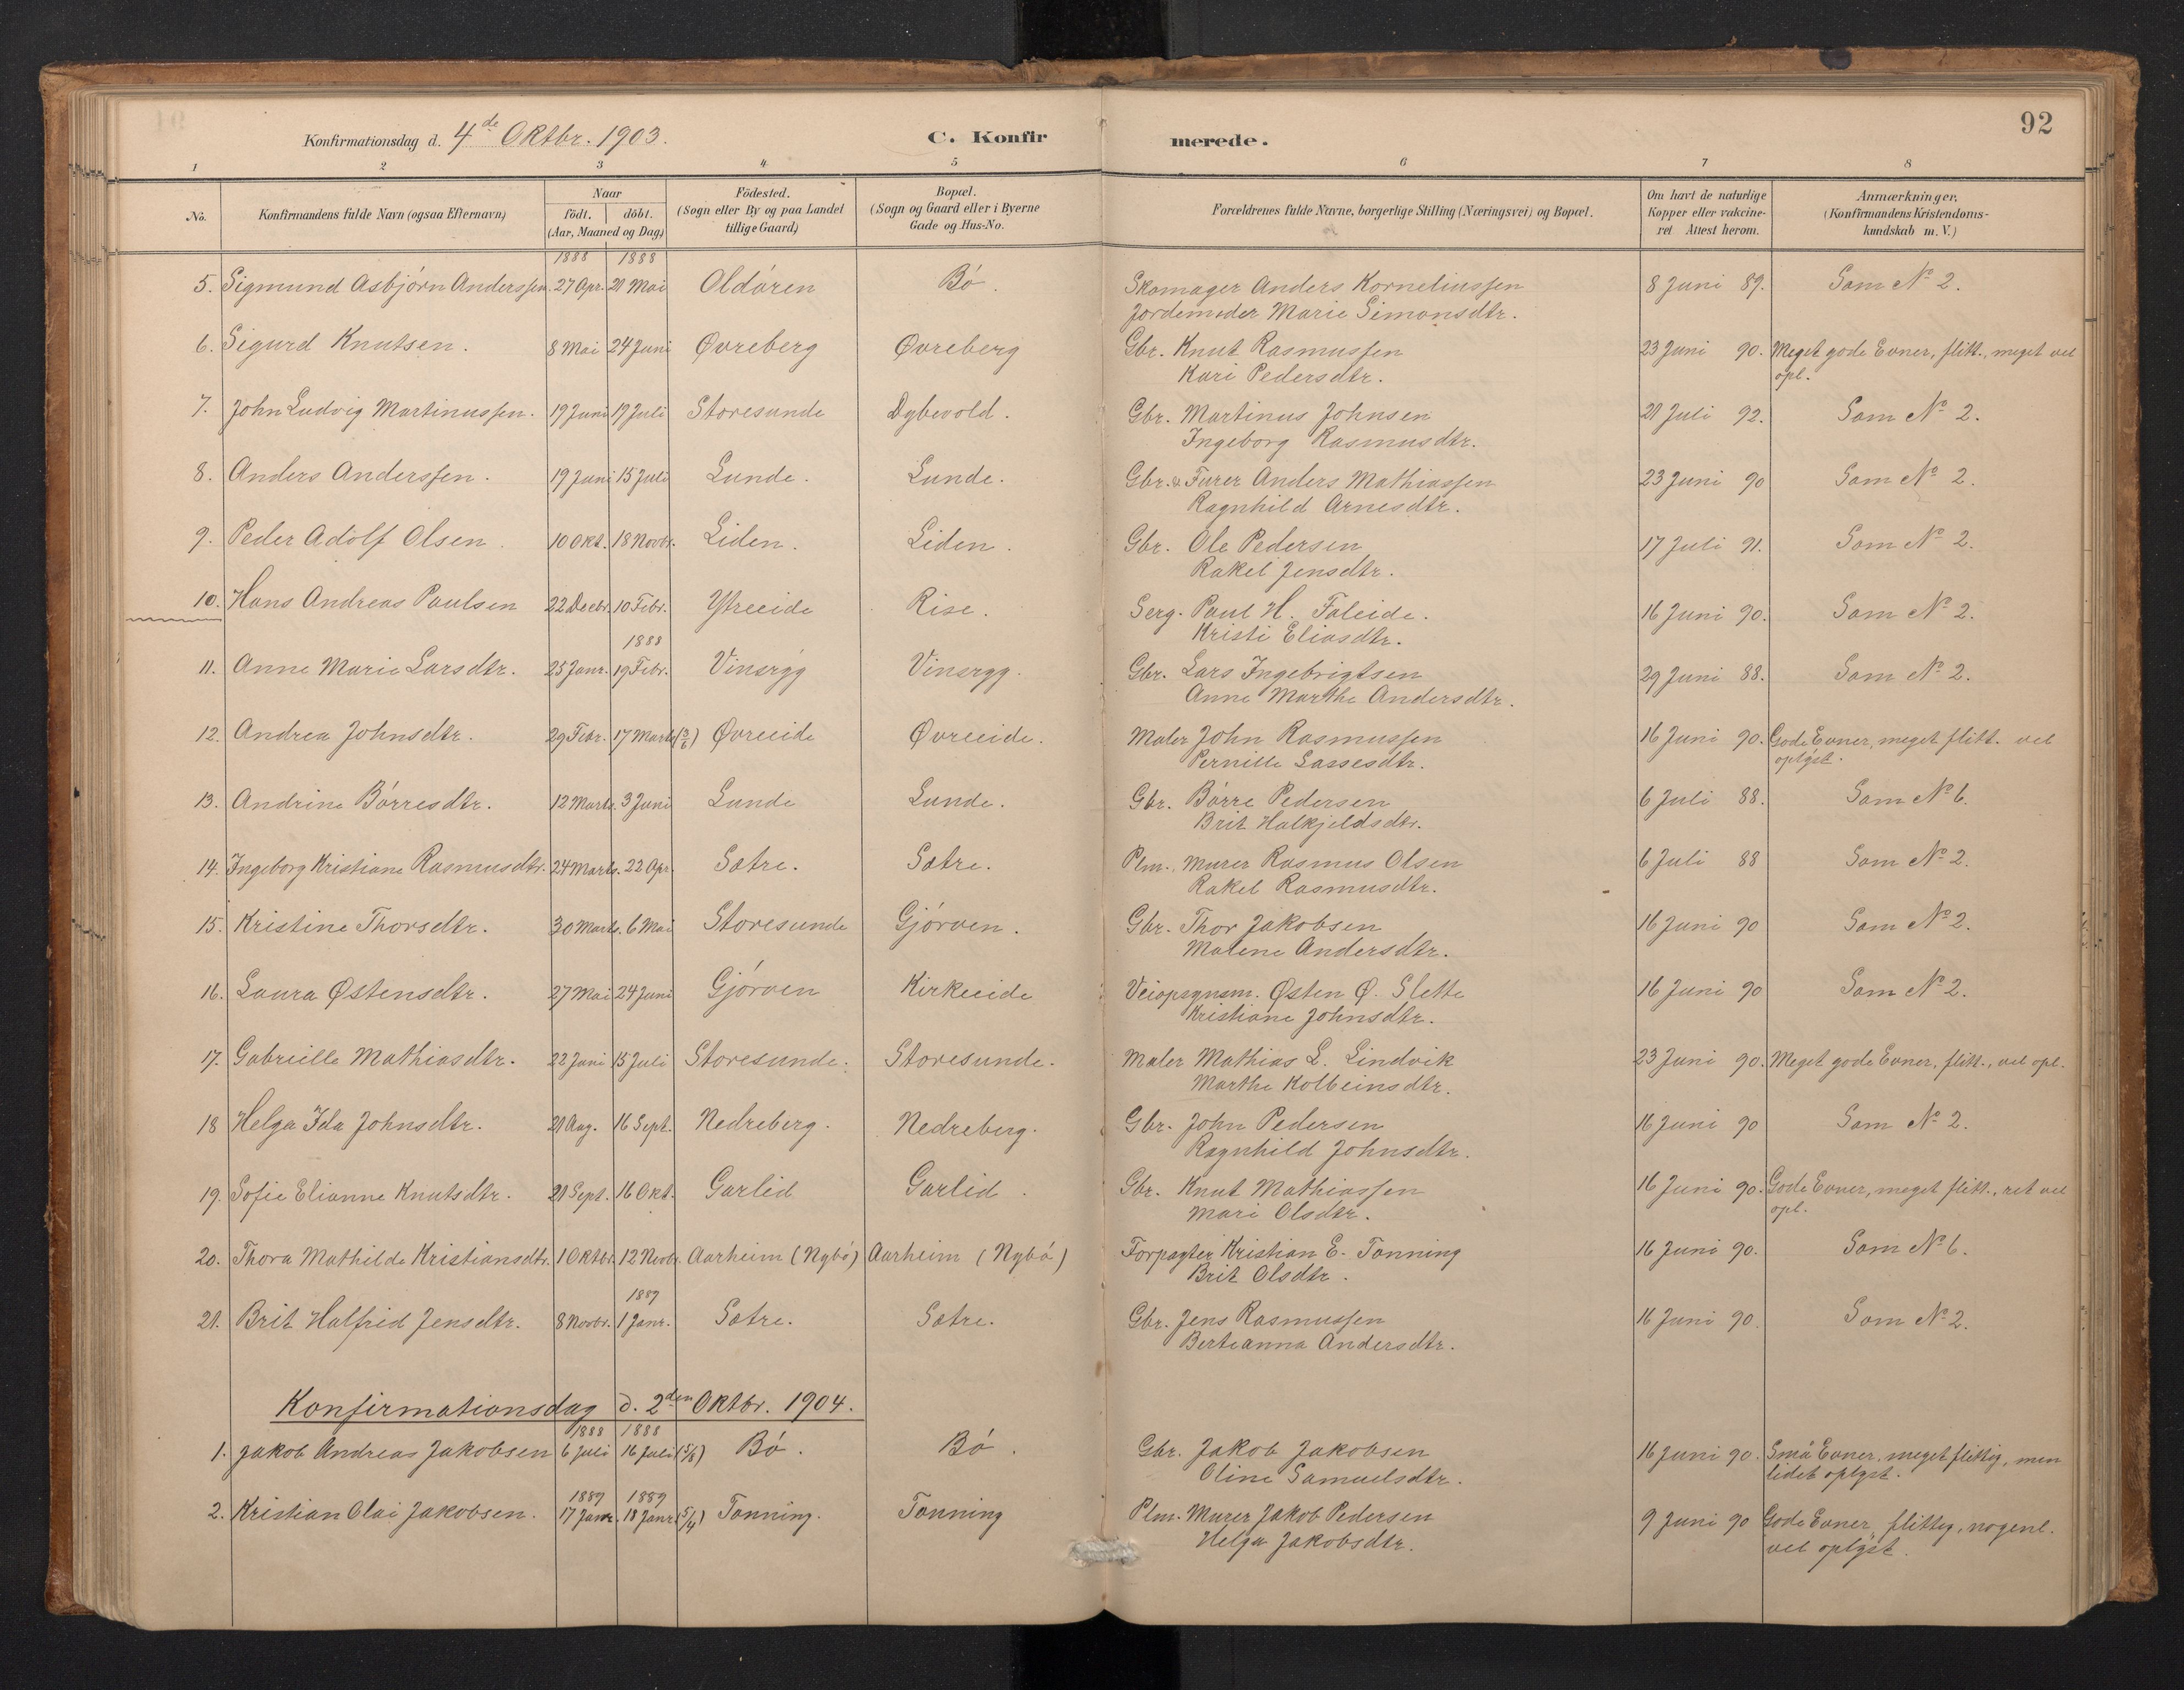 92
Konfirmationsdag d. 4de Oktbr. 1903. C. Konfirmerede.
1 2 3 4 5 6 7 8
No. Konfirmandens fulde Navn (ogsaa Efternavn) Naar födt. döbt. (Aar, Maaned og Dag) Födested. (Sogn eller By og paa Landet tillige Gaard) Bopæl. (Sogn og Gaard eller i Byerne Gade og Hus-No. Forældrenes fulde Navne, borgerlige Stilling (Næringsvei) og Bopæl. Om havt de naturlige Kopper eller vakcineret Attest herom. Anmærkninger. (Konfirmandens Kristendomskundskab m. V.)
1888 1888
5. Sigmund Asbjørn Anderssen. 27 Apr. 21 Mai Oldøren Bø. Skomager Anders Korneliussen 8 Juni 89. Som No 2.
Jordemoder Marie Simonsdtr.
6. Sigurd Knutsen. 8 Mai 24 Juni Øvreberg Øvreberg Gbr. Knut Rasmussen 23 Juni 90. Meget gode Evner, flitt., meget vel
Kari Pedersdtr. opl.
7. John Ludvig Martinussen. 19 Juni 17 Juli Storesunde Dybevold. Gbr. Martinus Johnsen 21 Juli 92. Som No 2.
Ingeborg Rasmusdtr.
8. Anders Anderssen. 19 Juni 15 Juli Lunde. Lunde. Gbr. & Furer Anders Mathiassen 23 Juni 90 Som No 2.
Ragnhild Arnesdtr.
9. Peder Adolf Olsen. 10 Okt. 18 Novbr. Liden. Liden. Gbr. Ole Pedersen 17 Juli 91. Som No 2.
Rakel Jensdtr.
10. Hans Andreas Paulsen 22 Decbr. 10 Febr. Ytreeide Rise. Serg. Paul H. Faleide. 16 Juni 90. Som No 2.
Kristi Eliasdtr.
1888
11. Anne Marie Larsdtr. 25 Janr. 19 Febr. Vinsrygg Vinsrygg. Gbr. Lars Ingebrigtsen 29 Juni 88. Som No 2.
Anne Marthe Andersdtr.
12. Andrea Johnsdtr. 29 Febr. 17 Marts (3/6) Øvreeide Øvreeide. Maler John Rasmussen 16 Juni 90. Gode Evner, meget flitt. vel
Pernille Lassesdtr. oplyst.
13. Andrine Børresdtr. 12 Marts. 3 Juni Lunde Lunde. Gbr. Børre Pedersen 6 Juli 88. Som No 6.
Brit Halkjeldsdtr.
14. Ingeborg Kristiane Rasmusdtr. 24 Marts. 22 Apr. Sætre. Sætre. Plm., Murer Rasmus Olsen 6 Juli 88 Som No 2.
Rakel Rasmusdtr.
15. Kristine Thorsdtr. 30 Marts. 6 Mai Storesunde Gjørven. Gbr. Thor Jakobsen 16 Juni 90 Som No 2.
Malene Andersdtr.
16. Laura Østensdtr. 27 Mai 24 Juni Gjørven Kirkeeide Veiopsynsm. Østen Ø. Slette 16 Juni 90 Som No 2.
Kristiane Johnsdtr.
17. Gabrielle Mathiasdtr. 22 Juni 15 Juli Storesunde. Storesunde. Maler Mathias L. Lindvik 23 Juni 90. Meget gode Evner, flitt., vel opl.
Marthe Kolbeinsdtr.
18 Helga Ida Johnsdtr. 21 Aug. 16 Sept. Nedreberg. Nedreberg. Gbr. John Pedersen 16 Juni 90 Som No 2.
Ragnhild Johnsdtr.
19. Sofie Elianne Knutsdtr. 21 Sept. 16 Okt. Garlid Garlid. Gbr. Knut Mathiassen 16 Juni 90. Gode Evner, meget flitt., ret vel
Mari Olsdtr. opl.
20. Thora Mathilde Kristiansdtr. 1 Oktbr. 12 Novbr. Aarheim (Nybø) Aarheim (Nybø) Forpagter Kristian E. Tonning 16 Juni 90. Som No 6.
Brit Olsdtr.
1889
21. Brit Halfrid Jensdtr. 8 Novbr. 1 Janr. Sætre. Sætre. Gbr. Jens Rasmussen 16 Juni 90. Som No 2.
Bertianna Andersdtr.
Konfirmationsdag d. 2den Oktbr. 1904.
1888 1888
1. Jakob Andreas Jakobsen 6 Juli 16 Juli (5/8) Bø. Bø. Gbr. Jakob Jakobsen 16 Juni 90. Små Evner, meget flittig, men
Oline Samuelsdtr. lidet oplyst.
1889 1889
2. Kristian Olai Jakobsen. 17 Janr. 18 Janr. (5/4) Tonning. Tonning Plm. Murer Jakob Pedersen 9 Juni 90 Gode Evner, flittig, nogenl.
Helga Jakobsdtr. vel oplyst.